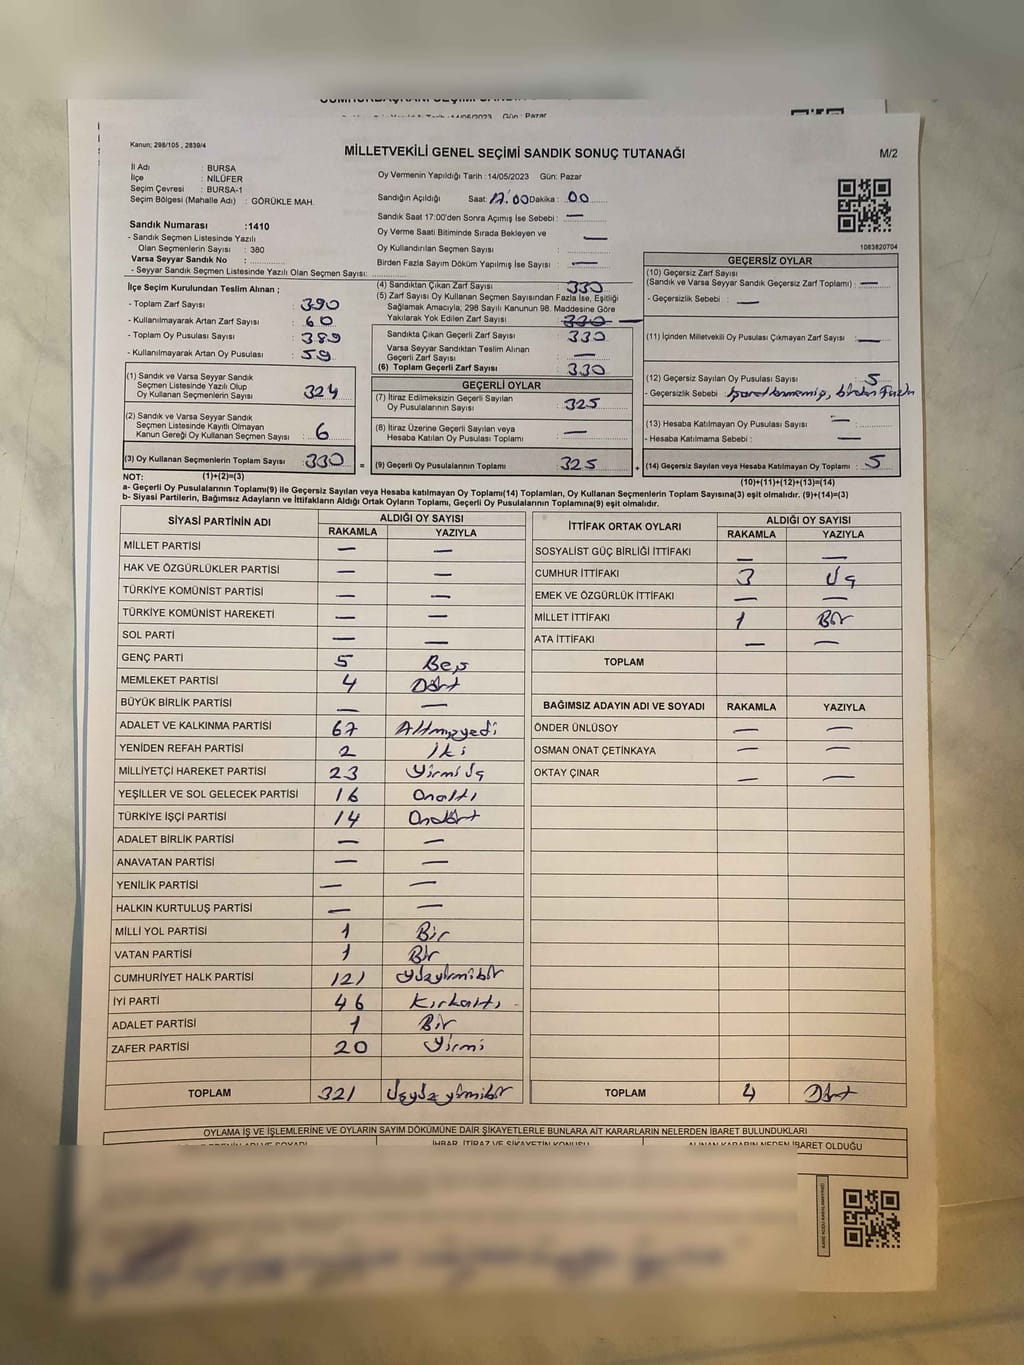 Kanun; 298/105 , 2839/4
MİLLETVEKİLİ GENEL SEÇİMİ SANDIK SONUÇ TUTANAĞI
M/2
İl Adı : BURSA
İlçe : NİLÜFER
Seçim Çevresi : BURSA-1
Seçim Bölgesi (Mahalle Adı) : GÖRÜKLE MAH.
Oy Vermenin Yapıldığı Tarih : 14/05/2023 Gün: Pazar
Sandığın Açıldığı Saat: 17:00 Dakika : 00
Sandık Saat 17:00'den Sonra Açımış İse Sebebi : —
Oy Verme Saati Bitiminde Sırada Bekleyen ve
Oy Kullandırılan Seçmen Sayısı : —
Birden Fazla Sayım Döküm Yapılmış İse Sayısı : —
1083820704
Sandık Numarası :1410
- Sandık Seçmen Listesinde Yazılı
Olan Seçmenlerin Sayısı : 380
Varsa Seyyar Sandık No :
- Seyyar Sandık Seçmen Listesinde Yazılı Olan Seçmen Sayısı:
İlçe Seçim Kurulundan Teslim Alınan ;
- Toplam Zarf Sayısı : 390
- Kullanılmayarak Artan Zarf Sayısı : 60
- Toplam Oy Pusulası Sayısı : 389
- Kullanılmayarak Artan Oy Pusulası : 59
(1) Sandık ve Varsa Seyyar Sandık
Seçmen Listesinde Yazılı Olup
Oy Kullanan Seçmenlerin Sayısı : 324
(2) Sandık ve Varsa Seyyar Sandık
Seçmen Listesinde Kayıtlı Olmayan
Kanun Gereği Oy Kullanan Seçmen Sayısı : 6
(3) Oy Kullanan Seçmenlerin Toplam Sayısı : 330
(1)+(2)=(3)
(4) Sandıktan Çıkan Zarf Sayısı : 330
(5) Zarf Sayısı Oy Kullanan Seçmen Sayısından Fazla İse, Eşitliği
Sağlamak Amacıyla; 298 Sayılı Kanunun 98. Maddesine Göre
Yakılarak Yok Edilen Zarf Sayısı : 330 —
Sandıkta Çıkan Geçerli Zarf Sayısı : 330
Varsa Seyyar Sandıktan Teslim Alınan
Geçerli Zarf Sayısı : —
(6) Toplam Geçerli Zarf Sayısı : 330
GEÇERLİ OYLAR
(7) İtiraz Edilmeksizin Geçerli Sayılan
Oy Pusulalarının Sayısı : 325
(8) İtiraz Üzerine Geçerli Sayılan veya
Hesaba Katılan Oy Pusulası Toplamı : —
= (9) Geçerli Oy Pusulalarının Toplamı : 325 +
GEÇERSİZ OYLAR
(10) Geçersiz Zarf Sayısı
(Sandık ve Varsa Seyyar Sandık Geçersiz Zarf Toplamı) : —
- Geçersizlik Sebebi : —
(11) İçinden Milletvekili Oy Pusulası Çıkmayan Zarf Sayısı : —
(12) Geçersiz Sayılan Oy Pusulası Sayısı : 5
- Geçersizlik Sebebi : birden fazla
(13) Hesaba Katılmayan Oy Pusulası Sayısı : —
- Hesaba Katılmama Sebebi : —
(14) Geçersiz Sayılan veya Hesaba Katılmayan Oy Toplamı : 5
(10)+(11)+(12)+(13)=(14)
NOT:
a- Geçerli Oy Pusulaları Toplamı(9) ile Geçersiz Sayılan veya Hesaba katılmayan Oy Toplamı(14) Toplamları, Oy Kullanan Seçmenlerin Toplam Sayısına(3) eşit olmalıdır. (9)+(14)=(3)
b- Siyasi Partilerin, Bağımsız Adayların ve İttifakların Aldığı Ortak Oyların Toplamı, Geçerli Oy Pusulalarının Toplamına(9) eşit olmalıdır.
SİYASİ PARTİNİN ADI
ALDIĞI OY SAYISI
RAKAMLA YAZIYLA
MİLLET PARTİSİ — —
HAK VE ÖZGÜRLÜKLER PARTİSİ — —
TÜRKİYE KOMÜNİST PARTİSİ — —
TÜRKİYE KOMÜNİST HAREKETİ — —
SOL PARTİ — —
GENÇ PARTİ 5 Beş
MEMLEKET PARTİSİ 4 Dört
BÜYÜK BİRLİK PARTİSİ — —
ADALET VE KALKINMA PARTİSİ 67 Altmışyedi
YENİDEN REFAH PARTİSİ 2 İki
MİLLİYETÇİ HAREKET PARTİSİ 23 Yirmi üç
YEŞİLLER VE SOL GELECEK PARTİSİ 16 Onaltı
TÜRKİYE İŞÇİ PARTİSİ 14 Ondört
ADALET BİRLİK PARTİSİ — —
ANAVATAN PARTİSİ — —
YENİLİK PARTİSİ — —
HALKIN KURTULUŞ PARTİSİ — —
MİLLİ YOL PARTİSİ 1 Bir
VATAN PARTİSİ 1 Bir
CUMHURİYET HALK PARTİSİ 121 Yüzyirmibir
İYİ PARTİ 46 Kırkaltı
ADALET PARTİSİ 1 Bir
ZAFER PARTİSİ 20 Yirmi
TOPLAM 321 Üçyüz yirmibir
İTTİFAK ORTAK OYLARI
ALDIĞI OY SAYISI
RAKAMLA YAZIYLA
SOSYALİST GÜÇ BİRLİĞİ İTTİFAKI — —
CUMHUR İTTİFAKI 3 Üç
EMEK VE ÖZGÜRLÜK İTTİFAKI — —
MİLLET İTTİFAKI 1 Bir
ATA İTTİFAKI — —
TOPLAM
BAĞIMSIZ ADAYIN ADI VE SOYADI RAKAMLA YAZIYLA
ÖNDER ÜNLÜSOY — —
OSMAN ONAT ÇETİNKAYA — —
OKTAY ÇINAR — —
TOPLAM 4 Dört
OYLAMA İŞ VE İŞLEMLERİNE VE OYLARIN SAYIM DÖKÜMÜNE DAİR ŞİKAYETLERLE BUNLARA AİT KARARLARIN NELERDEN İBARET BULUNDUKLARI
İHBAR, İTİRAZ VE ŞİKAYETİN KONUSU
ALINAN KARARIN NEDEN İBARET OLDUĞU